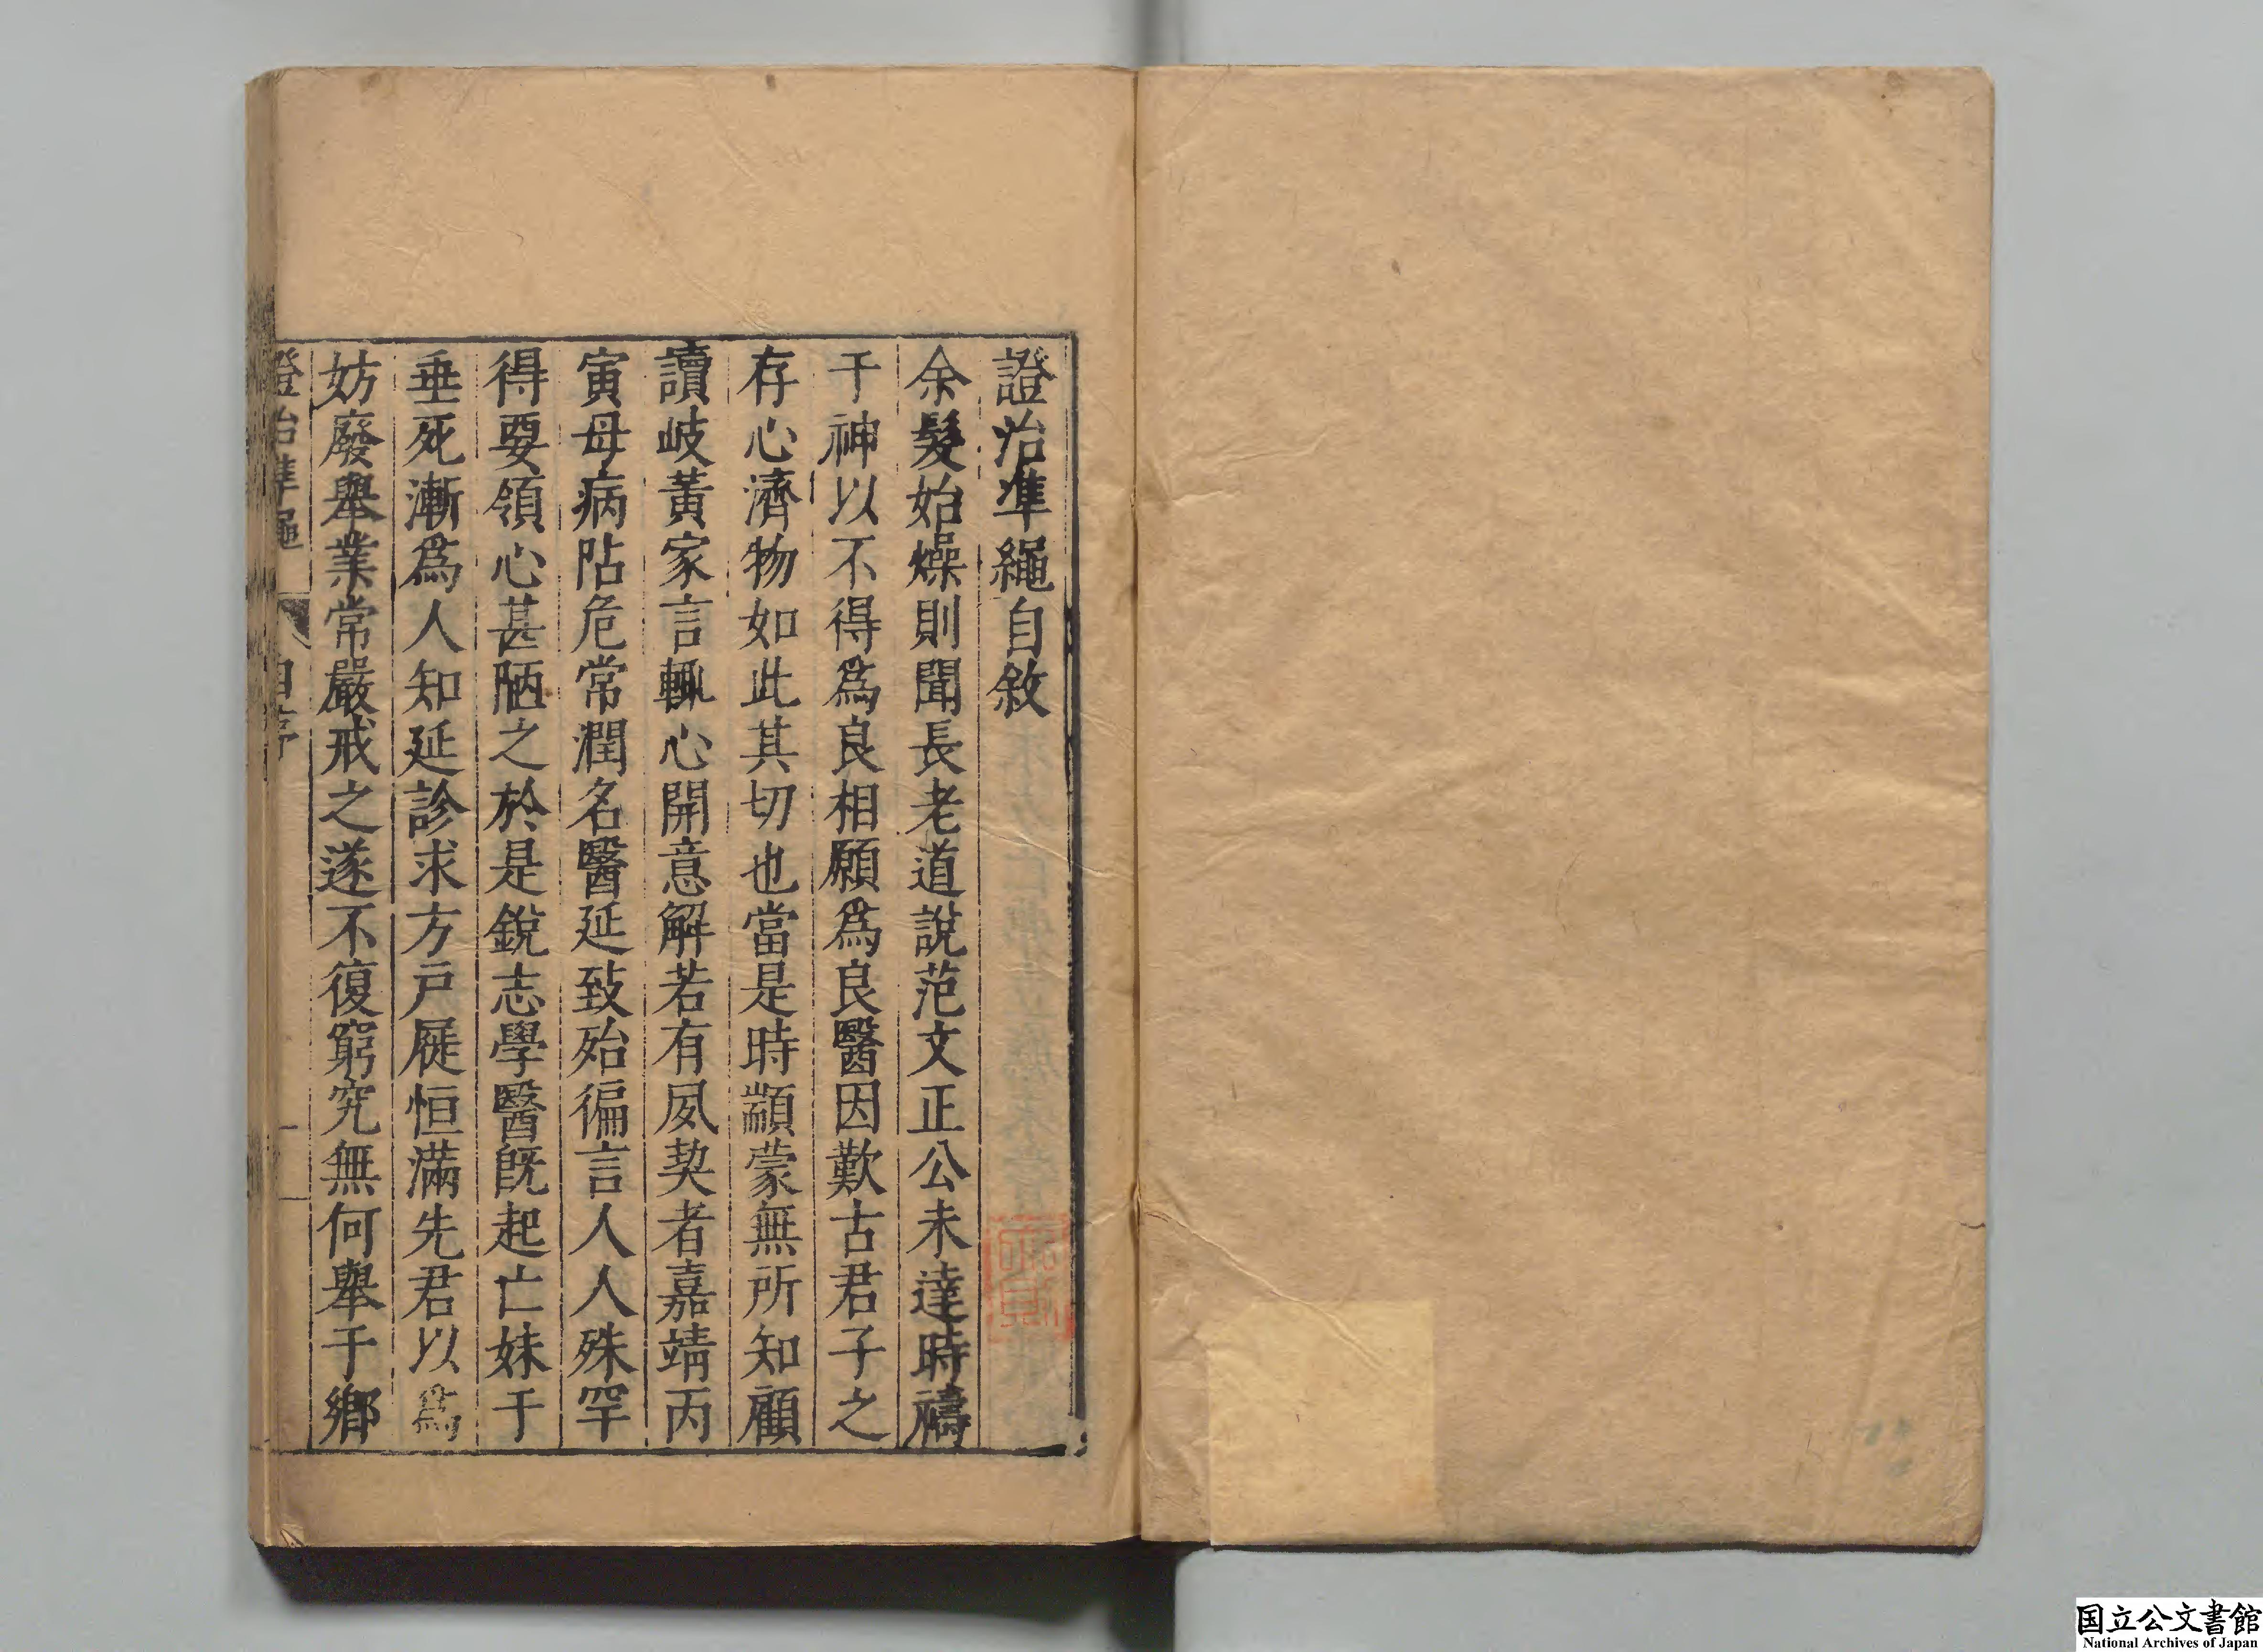 證治準繩自敘
余髮始燥則聞長老道說范文正公未達時禱
于神以不得爲良相願爲良醫因歎古君子之
存心濟物如此其切也當是時顓蒙無所知顧
讀岐黃家言輒心開意解若有夙契者嘉靖丙
寅母病阽危常潤名醫延致殆徧言人人殊罕
得要領心甚陋之於是銳志學醫旣起亡妹于
垂死漸爲人知延診求方戶屣恒滿先君以爲
妨廢舉業常嚴戒之遂不復窮究無何舉于鄉
證治準繩
自序
一
国立公文書館
National Archives of Japan